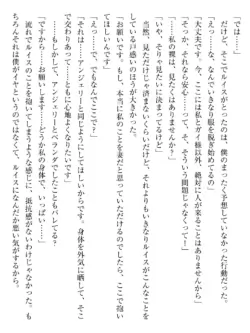 では……」
だがそこでルイスがとったのは、僕のまったく予想していなかった行動だった。
「えっ……な、なんでいきなり服を脱ぎ始めてるの！？」
「大丈夫です、ここには私とガイ様以外、絶対に人が来ることはありませんから」
「い、いや、そういう問題じゃなくって！」
「……私の裸は、見たくはありませんか？」
「いや、そりゃ見たいに決まってるけど」
当然、見ただけじゃ済まないくらいだけど、それよりもいきなりルイスがこんなことをしている戸惑いのほうが大きかった。
「お願いです。もし、本当に私のことを妻だと思っていただけるのでしたら、ここで抱いてほしいんです」
「えっ……で、でもなんでここで？」
「その……アンジェリーと同じようにしてほしいからです。身体を外気に晒して、そこで交わるって……とても心地よくなりたいです」
「いいっ！？　アンジェリーとベランダでしたこともバレてる？」
「ですから……ガイ様、どうか私の身体で、いっぱい……」
お願いしますと言われてしまうような感じに、抵抗感がないわけじゃなかった。も
流れでルイスのことを抱いてしまうような感じに、抵抗感がないわけじゃなかった。も
ちろんそれは僕がイヤというのではなく、ルイスになんだか悪い気がするから。